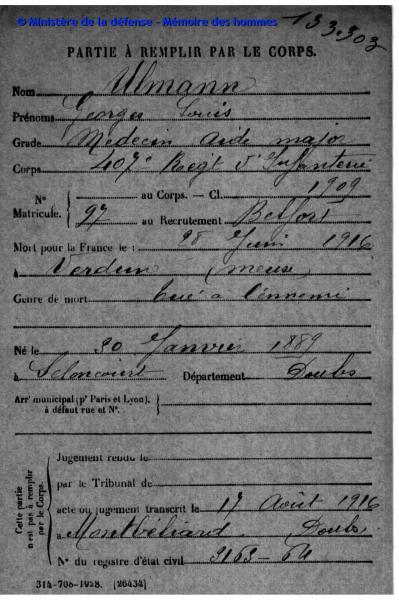 © Ministère de la défense - Mémoire des hommes
133.303
PARTIE À REMPLIR PAR LE CORPS.
Nom Ulmann
Prénoms Georges Louis
Grade Médecin Aide major
Corps 407e Regt d'Infanterie
N° Matricule. { au Corps. — Cl. 1909
97 au Recrutement Belfort
Mort pour la France le : 28 Juin 1916
à Verdun (Meuse)
Genre de mort tué à l'ennemi
Né le 30 Janvier 1889
à Seloncourt Département Doubs
Arrt municipal (pr Paris et Lyon), à défaut rue et N°. {
Cette partie n'est pas à remplir par le Corps.
Jugement rendu le
par le Tribunal de
acte ou jugement transcrit le 17 Août 1916
à Montbéliard Doubs
N° du registre d'état civil 9163-64
314-708-1928. [26434]